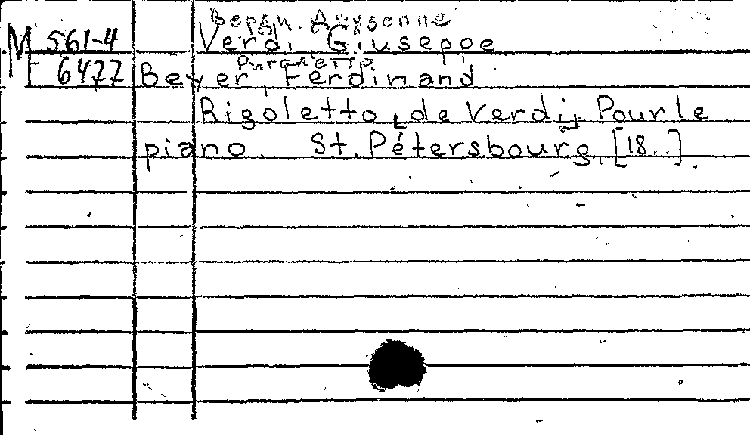 Верди, Джузеппе
М 561-4 Verdi Giuseppe
Риголетто
6477 Beyer, Ferdinand
Rigoletto [de Verdi]. Pour le
piano. St. Pétersbourg, [18..]